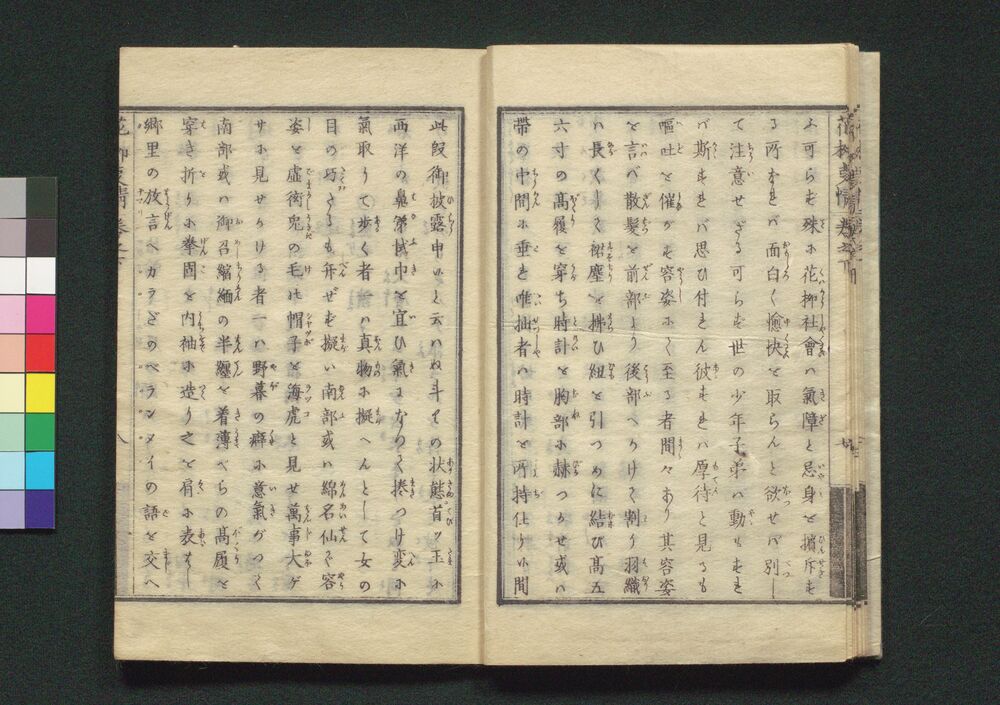 ふ可らず殊に花柳社會ハ氣障と忌身と擯斥す
る所なれバ面白く愉快を取らんと欲せバ別し
て注意せざる可らず世の少年子弟ハ動もすれ
バ斯すれバ思ひ付れん彼すれバ厚待と見るも
嘔吐を催かす容姿にて至る者間々あり其容姿
を言べ散髪を前部より後部へかけて割り羽織
ハ長くして裾塵を拂ひ紐を引つめに結び髙五
六寸の髙履を穿ち時計を胸部に赫つかせ或ハ
帶の中間に垂を唯拙者ハ時計を所持仕り升間
此段御披露申升と云ハぬ斗りの状態首ッ玉に
西洋の鼻拭巾を宜ひ氣になりて捲つけ変に
氣取りて歩く者ハ真物に擬へんとして女の
目の巧さるも弁ぜず擬い南部或ハ綿名仙て容
姿を虚衒兎の毛の帽子を海虎と見せ萬事大ゲ
サに見せかける者一ハ野暮の癖に意氣がつて
南部或ハ御召縮緬の半纏を着薄べらの髙履を
穿き折りに拳固を内袖に造り之を肩に表はし
郷里の放言へカラどのベランメイの語を交へ
花柳事情 卷之下